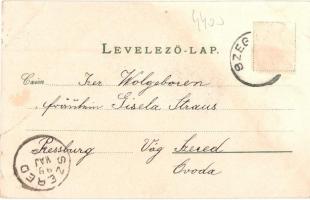 4400
LEVELEZŐ-LAP.
SZEG
Czim Izer Wolgeboren
fräulein Gisela Straus
Pressburg Vág Szered
Ovoda
SZERED
99
MÁJ
5